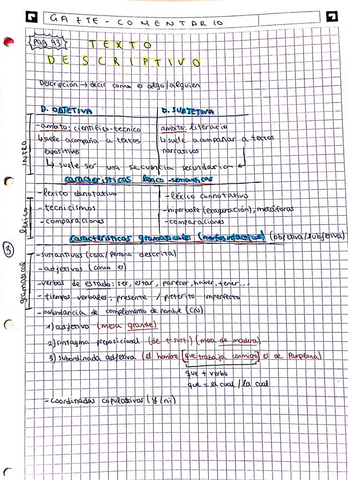 GAZTE - COMENTARIO
Pag 43
TEXTO
DESCRIPTIVO
Descripción → decir como es algo/alguien
D. OBJETIVA D. SUBJETIVA
INTRO
- ambito: cientifico-tecnico ambito: literario
↳ suele acompaña a textos ↳ suele acompañar a textos
expositivos narrativos
↳ suele ser una secuencia secundaria ↵
características léxico-semánticas
léxico
- léxico denotativo - léxico connotativo
- tecnicismos - hiperbole (exageración), metáforas
- comparaciones - comparaciones
características gramaticales (morfosintácticas) (objetiva/subjetiva)
3
gramatical
- sustantivos (cosa/persona descrita)
- adjetivos (como es)
- verbos de estado: ser, estar, parecer, haber, tener...
- tiempos verbales: presente / pretérito imperfecto
- abundancia de complemento de nombre (CN)
1) adjetivo (mesa grande)
2) sintagma preposicional (de + sust.) (mesa de madera)
3) subordinada adjetiva (el hombre que trabaja conmigo es de Pamplona)
que + verbo
que = el cual / la cual
- Coordinadas copulativas (y/ni)